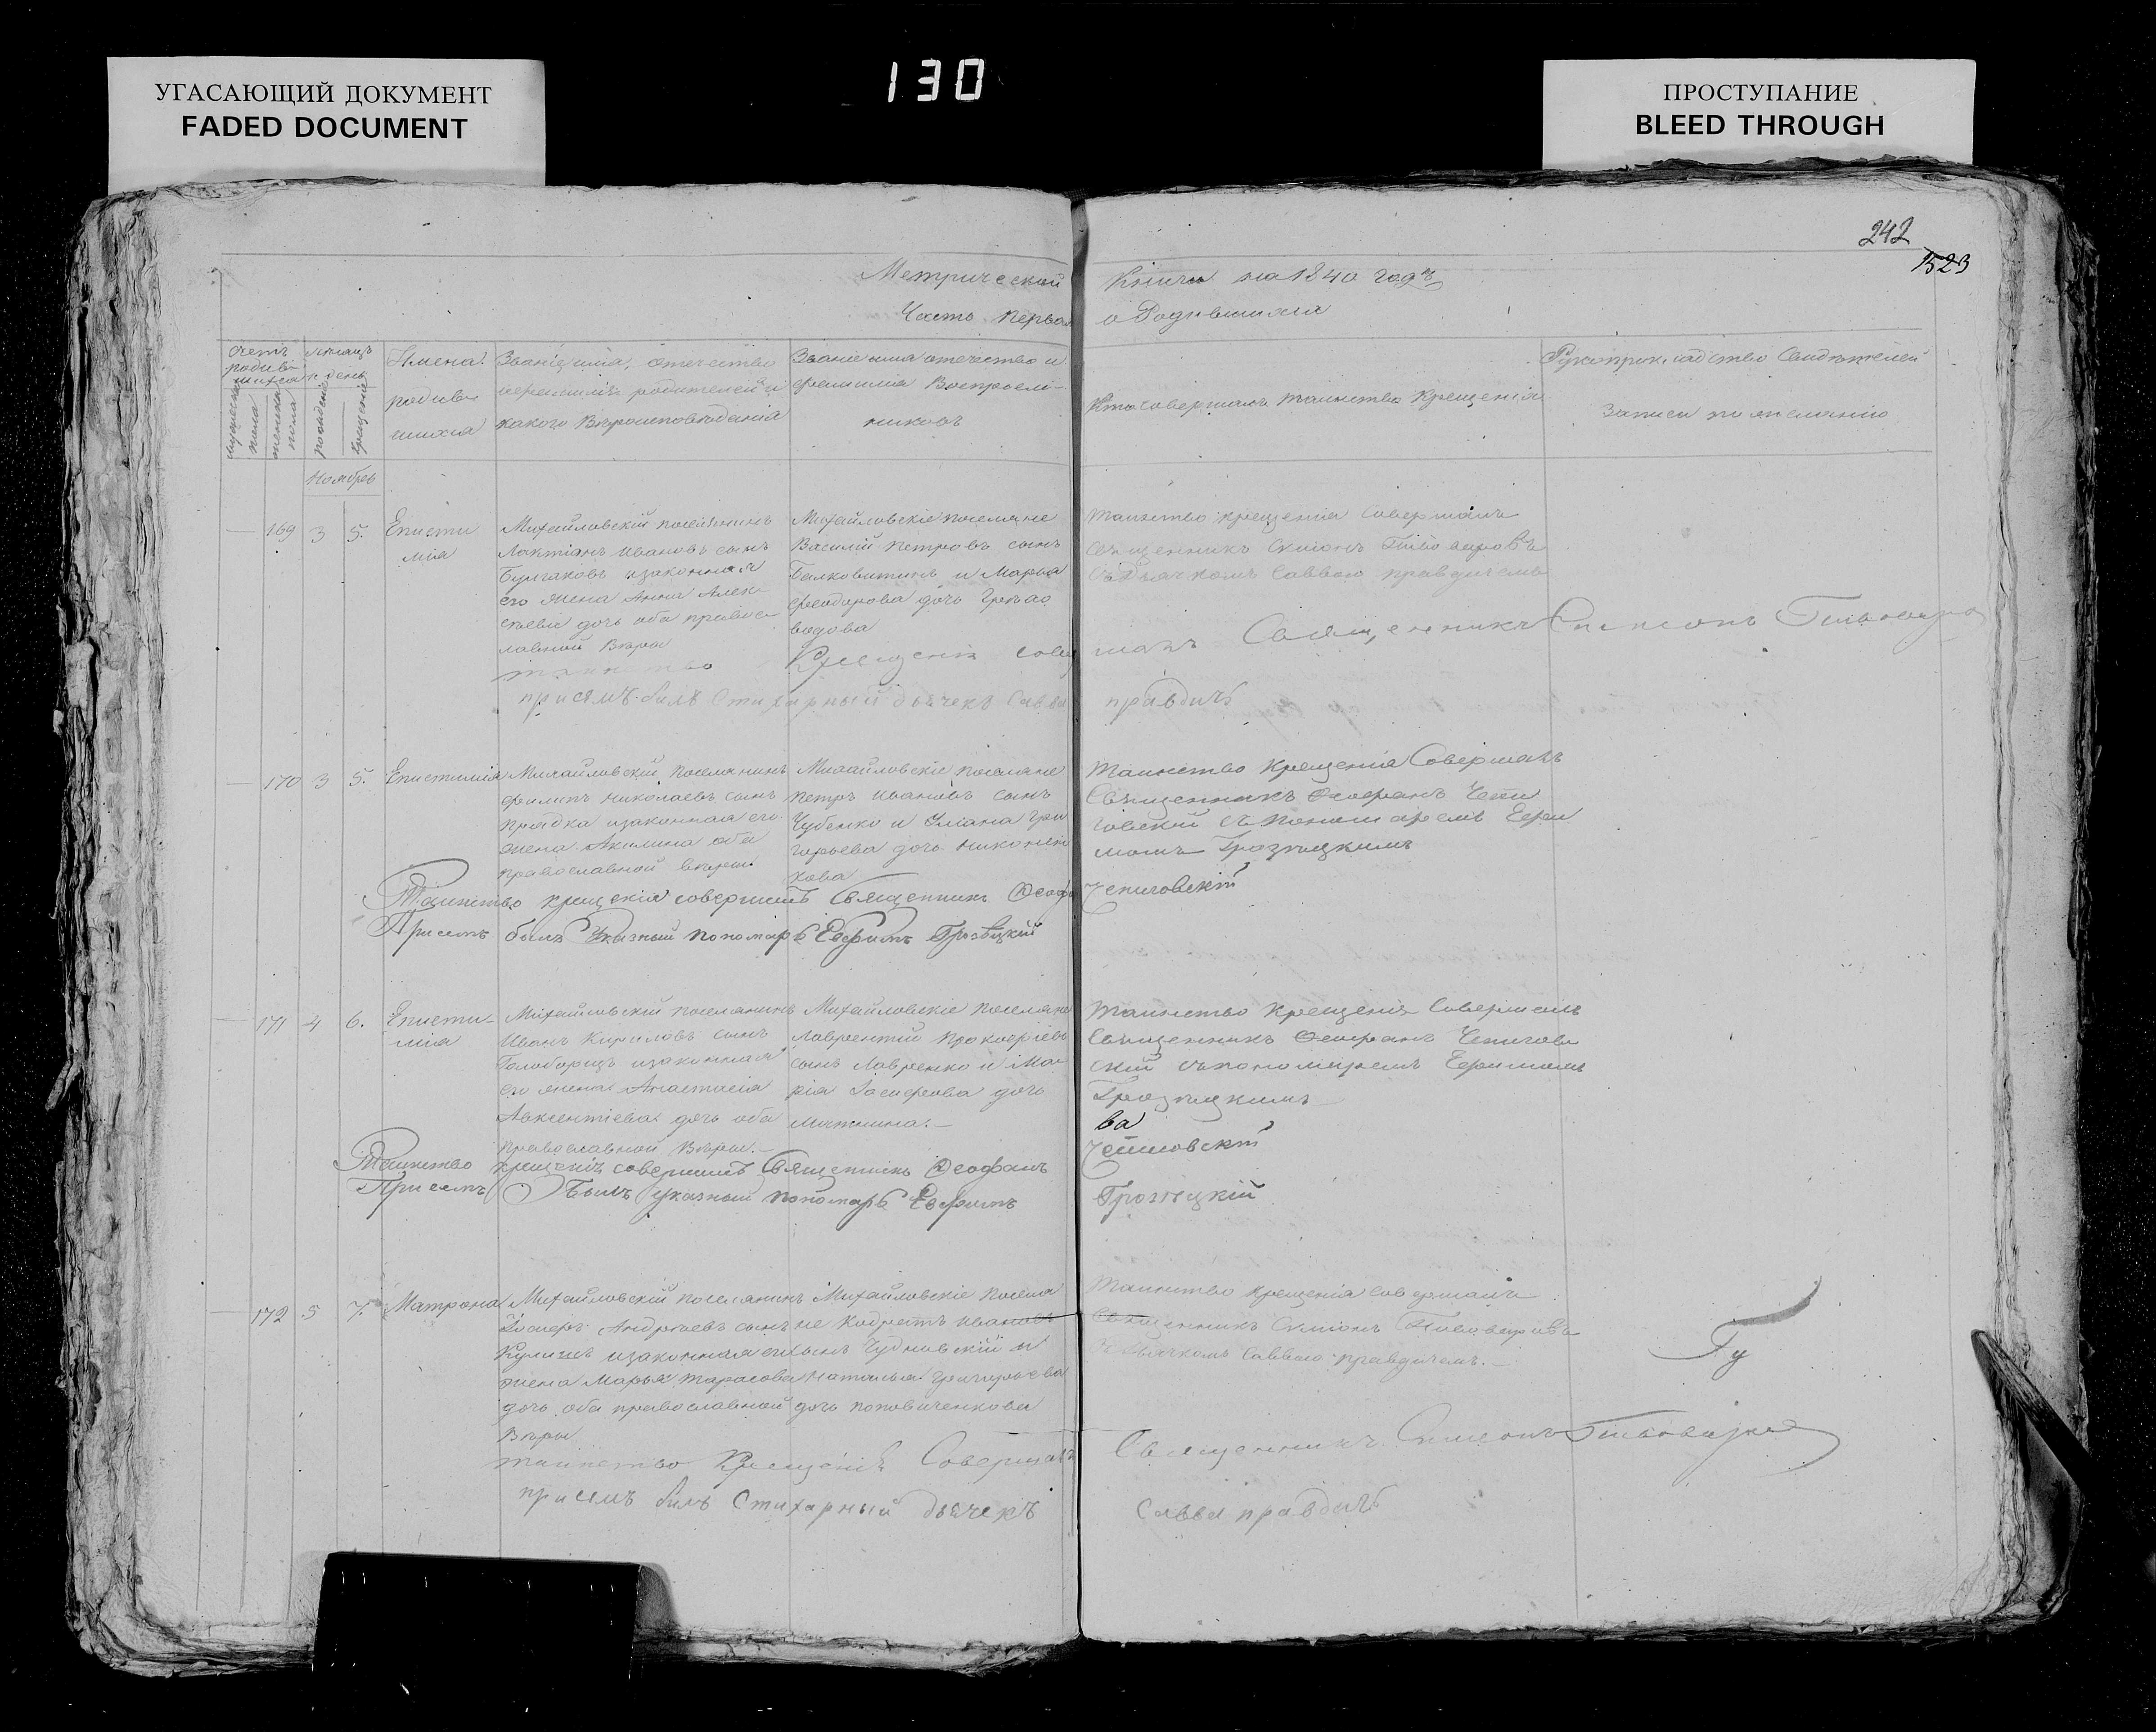 УГАСАЮЩИЙ ДОКУМЕНТ
FADED DOCUMENT
130
ПРОСТУПАНИЕ
BLEED THROUGH
242
1523
Метрической Книги на 1840 годъ
Часть первая о Родившихся
Счетъ родив-шихся
мужеска пола
женска пола
Мѣсяцъ и день
рожденія
крещенія
Имена родив-шихся
Званіе имя, отечество
и фамилія родителей и
какого Вѣроисповѣданія
Званіе имя отечество и
фамилія Воспріем-
никовъ
Кто совершалъ таинство Крещенія
Рукоприкладство Свидѣтелей
записи по желанію
Ноябрь
169 3 5. Еписти
мія
Михайловскій поселянинъ
Лактіанъ Ивановъ сынъ
Булгаковъ изаконная
его жена Анна Алек-
сѣева дочь оба правос-
лавной Вѣры
Михайловскіе поселяне
Василій Петровъ сынъ
и Марья
Феодорова дочь
Таинство крещенія совершалъ
священникъ Симіонъ
съ Дьячкомъ Саввою правдичемъ
таинство Крещенія совершалъ Священникъ Симеонъ
присемъ былъ Стихарный дьячекъ Савва правдичъ
170 3 5. Епистимія
Михайловскій поселянинъ
Филипъ Николаевъ сынъ
изаконная его
жена Акилина оба
православной вѣры
Михайловскіе поселяне
Петръ Ивановъ сынъ
Чубенко и Уліана Гри
горьева дочь
Таинство крещенія Совершалъ
Священникъ Феофанъ Чепи
говскій съ Пономаремъ Ефи
момъ Грозницкимъ
Таинство крещенія совершилъ Священникъ Феофа Чепиговскій
Присемъ былъ Указный пономарь Ефимъ Грозницкій
171 4 6. Еписти-
мія
Михайловскій поселянинъ
Иванъ Кириловъ сынъ
изаконная
его жена Анастасія
Авксентіева дочь оба
православной Вѣры.
Михайловскіе поселяне
Лаврентій Прокофіевъ
сынъ Лавренко и Ма-
рія Іосифова дочь
Таинство Крещенія Совершалъ
Священникъ Феофанъ Чепигов
скій съ пономаремъ Ефимомъ
Грозницкимъ
ва
Таинство крещенія совершилъ Священникъ Феофанъ Чепиговскій
Присемъ Былъ указный пономарь Ефимъ Грозницкій
172 5 7. Матрона
Михайловскій поселянинъ
Іосифъ Андреевъ сынъ
Кулишъ изаконная его
жена Марья Тарасова
дочь оба православной
Вѣры
Михайловскіе поселя
не Кодратъ Ивановъ
сынъ Чудновскій и
Наталья Григорьева
дочь Поповиченкова
Таинство крещенія совершалъ
Священникъ Симіонъ
съ Дьячкомъ Саввою правдичемъ.
Гу
таинство Крещенія Совершалъ Священникъ Симеонъ
присемъ былъ Стихарный дьячекъ Савва правдичъ